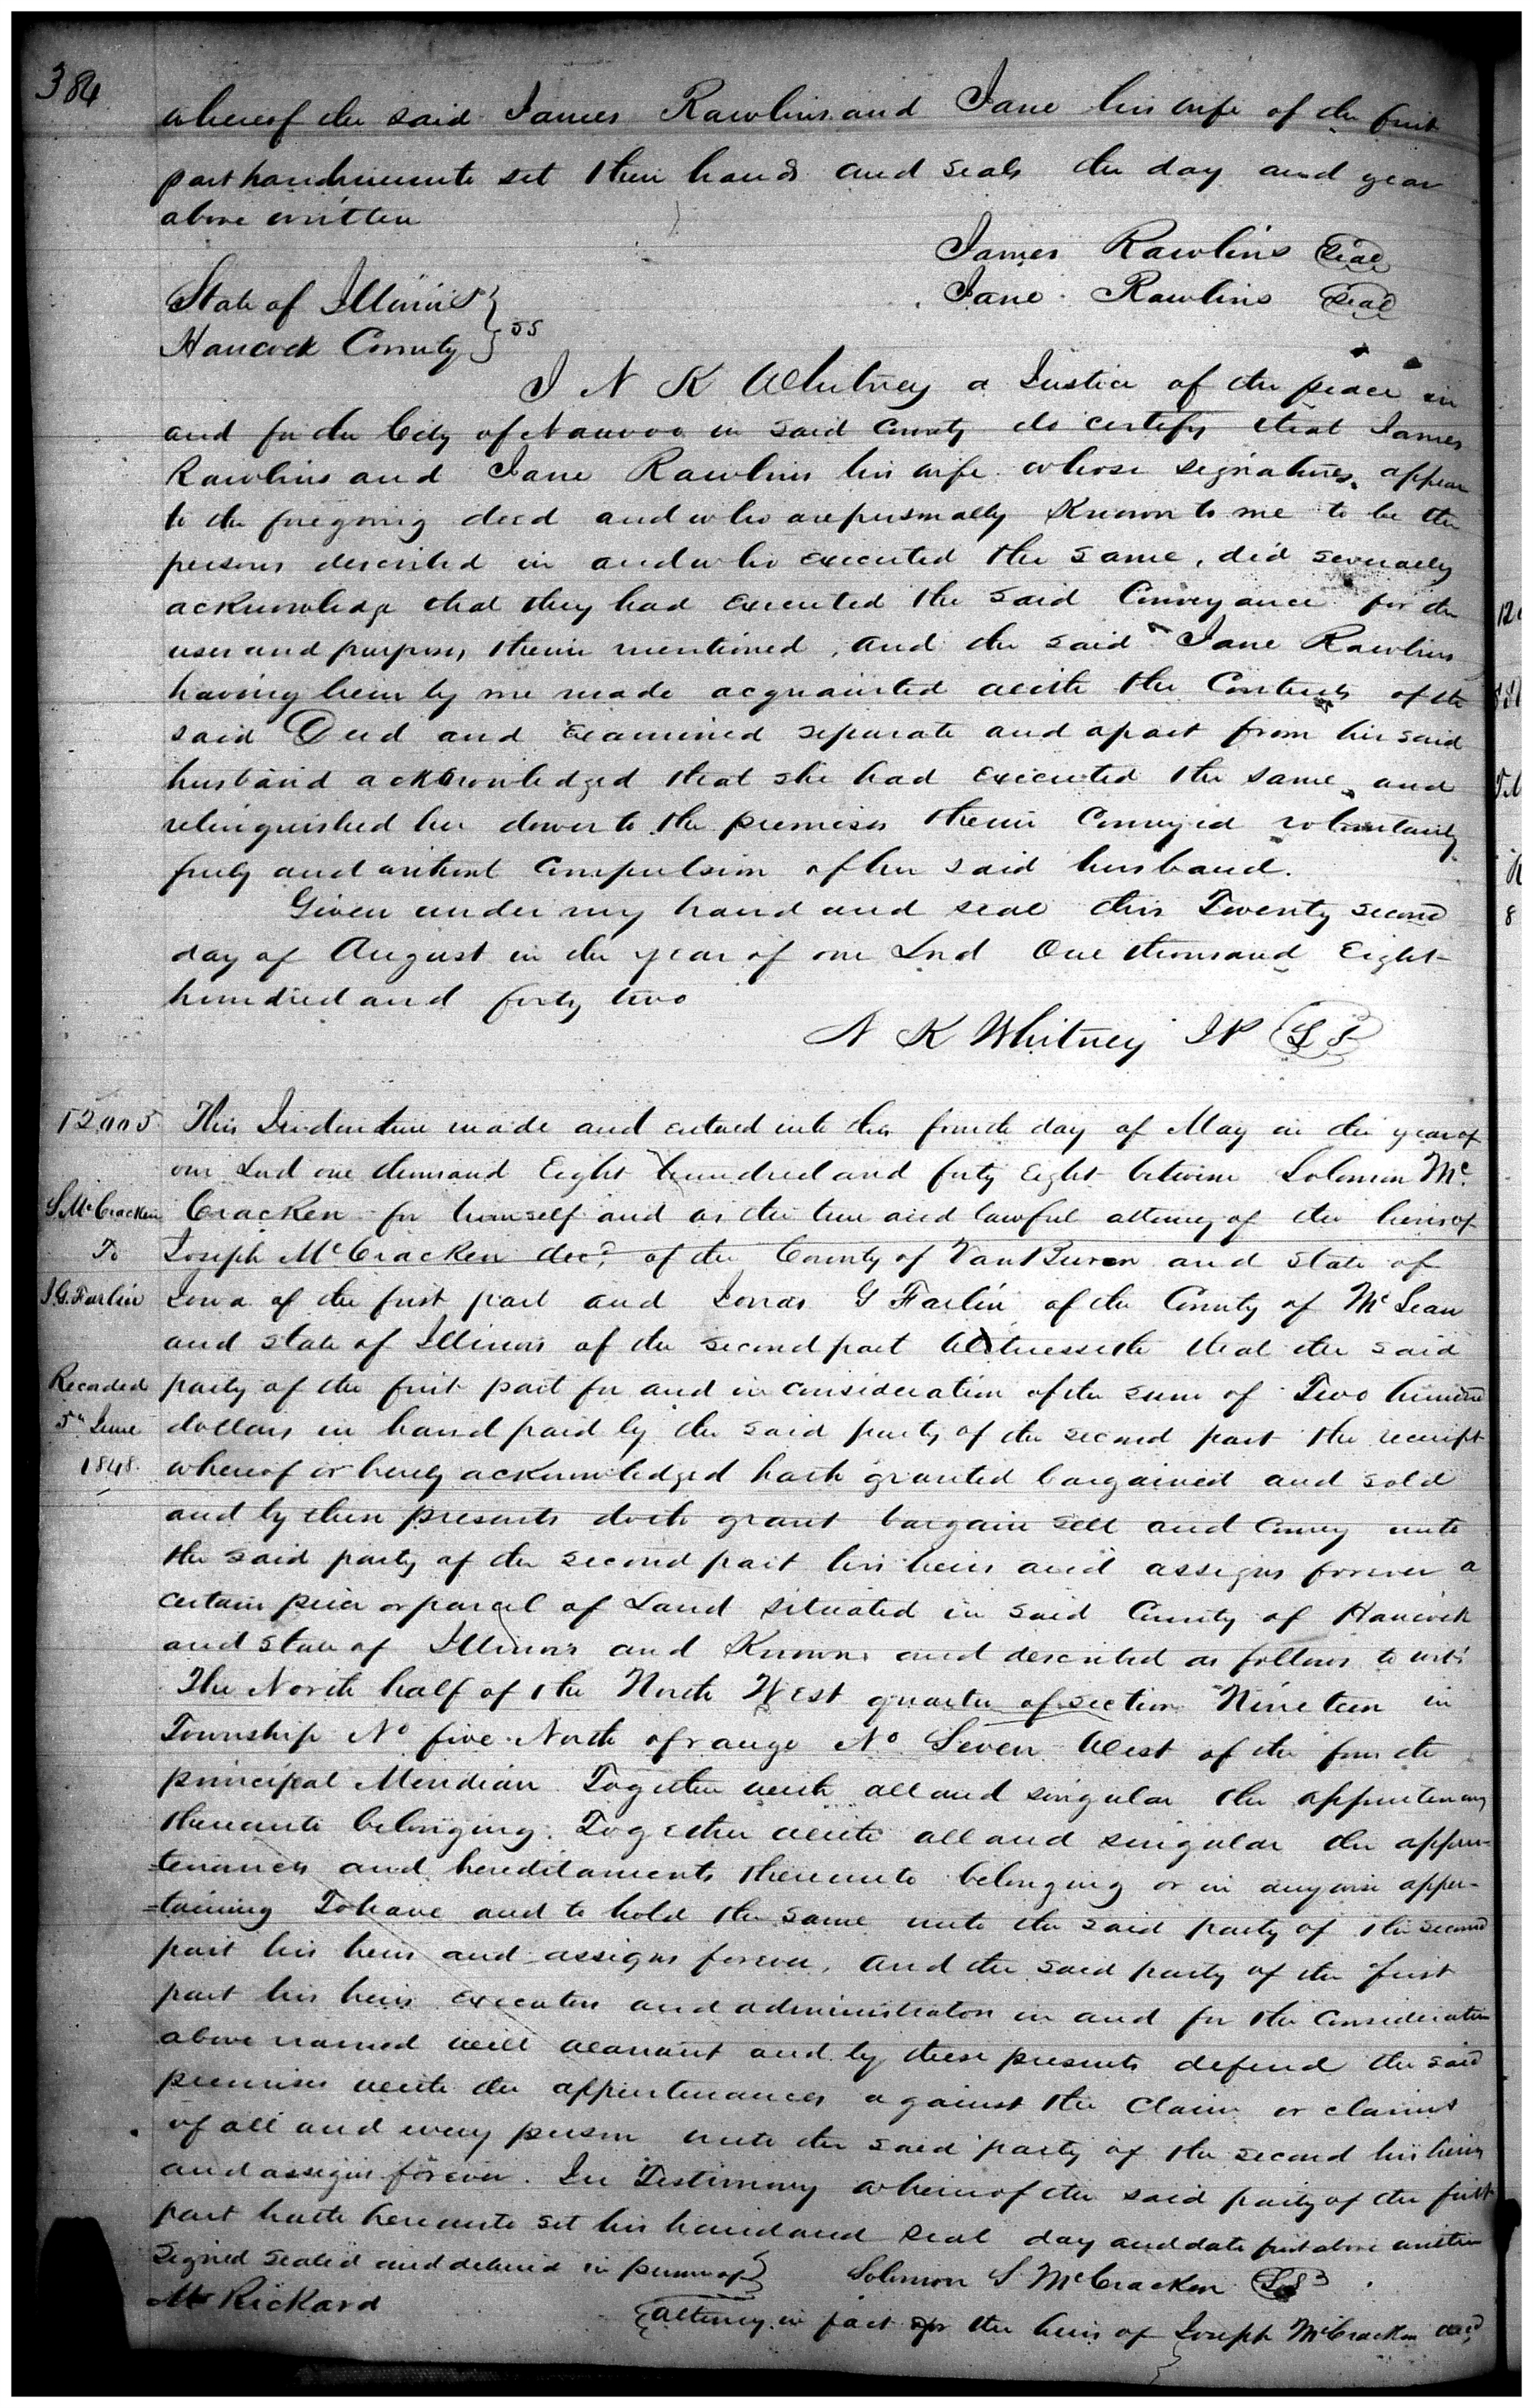 384
whereof the said James Rawlins and Jane his wife of the first
part haurhereunto set their hands and seals the day and year
above written
James Rawlins Seal
Jane Rawlins Seal
State of Illinois } ss
Hancock County }
I N K Whitney a Justice of the peace in
and for the City of Nauvoo in said County do certify that James
Rawlins and Jane Rawlins his wife whose signatures appear
to the foregoing deed and who are personally Known to me to be the
persons described in and who executed the same, did severally
acknowledge that they had executed the said Conveyance for the
uses and purposes therein mentioned, and the said Jane Rawlins
having been by me made acquainted with the Contents of the
said Deed and Examined separate and apart from her said
husband acknowledged that she had executed the same and
relinquished her dower to the premises therein Conveyed voluntarily
freely and without Compulsion of her said husband.
Given under my hand and seal this Twenty second
day of August in the year of our Lord One thousand Eight
hundred and forty two
N K Whitney JP LS
12,005 This Indenture made and entered into this fourth day of May in the year of
our Lord one thousand Eight hundred and forty Eight between Solomon Mc
S. McCracken Cracken for himself and as the true and lawful attorney of the heirs of
To Joseph McCracken decd of the County of Van Buren and State of
J. G. Farlin Iowa of the first part and Jonas G Farlin of the County of McLean
and State of Illinois of the second part Witnesseth that the said
Recorded party of the first part for and in consideration of the sum of Two hundred
5th June dollars in hand paid by the said party of the second part the receipt
1848. whereof is hereby acknowledged hath granted bargained and sold
and by these presents doth grant bargain sell and Convey unto
the said party of the second part his heirs and assigns forever a
certain piece or parcel of Land situated in said County of Hancock
and State of Illinois and Known and described as follows to wit:
The North half of the North West quarter of section Nineteen in
Township No five North of range No Seven West of the fourth
principal Meridian Together with all and singular the appurtenances
thereunto belonging. Together with all and singular the appur-
-tenances and hereditaments thereunto belonging or in anywise apper-
-taining To have and to hold the same unto the said party of the second
part his heirs and assigns forever, and the said party of the first
part his heirs executors and administrators in and for the Consideration
above named will warrant and by these presents defend the said
premises with the appurtenances against the Claim or claims
of all and every person unto the said party of the second his heirs
and assigns forever. In Testimony whereof the said party of the first
part hath hereunto set his hand and seal day and date first above written
Signed sealed and delivered in presence of } Solomon S McCracken LS
M Rickard
attorney in fact for the heirs of Joseph McCracken decd